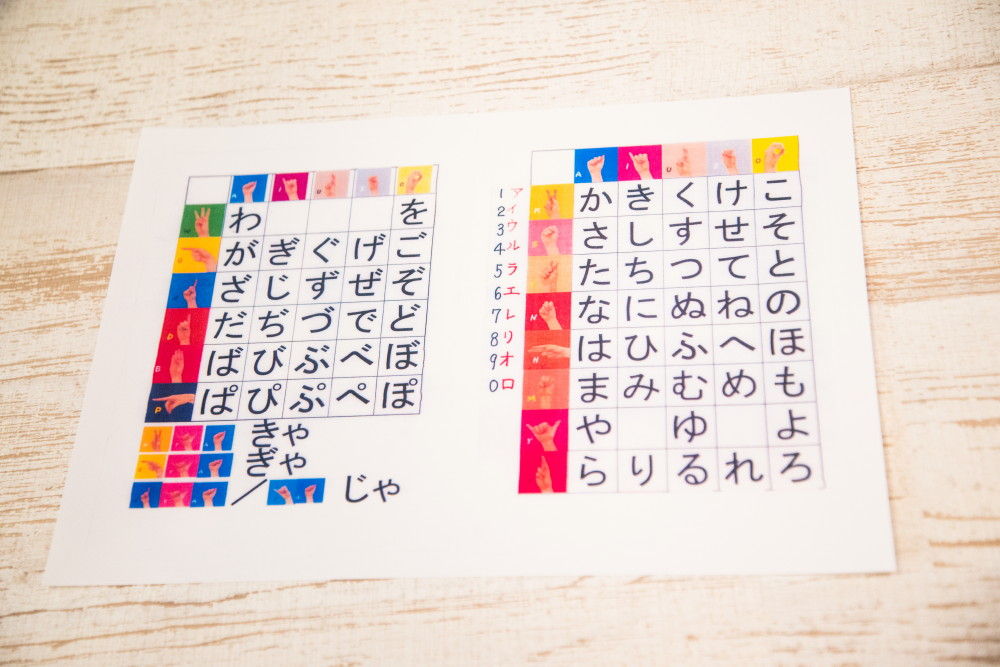 A I U E O
W わ を
G が ぎ ぐ げ ご
J ざ じ ず ぜ ぞ
D だ ぢ づ で ど
B ば び ぶ べ ぼ
P ぱ ぴ ぷ ぺ ぽ
きゃ
ぎゃ
/ じゃ
A I U E O
K か き く け こ
S さ し す せ そ
た ち つ て と
N な に ぬ ね の
H は ひ ふ へ ほ
M ま み む め も
Y や ゆ よ
ら り る れ ろ
1 ア
2 イ
3 ウ
4 ル
5 ラ
6 エ
7 レ
8 リ
9 オ
0 ロ